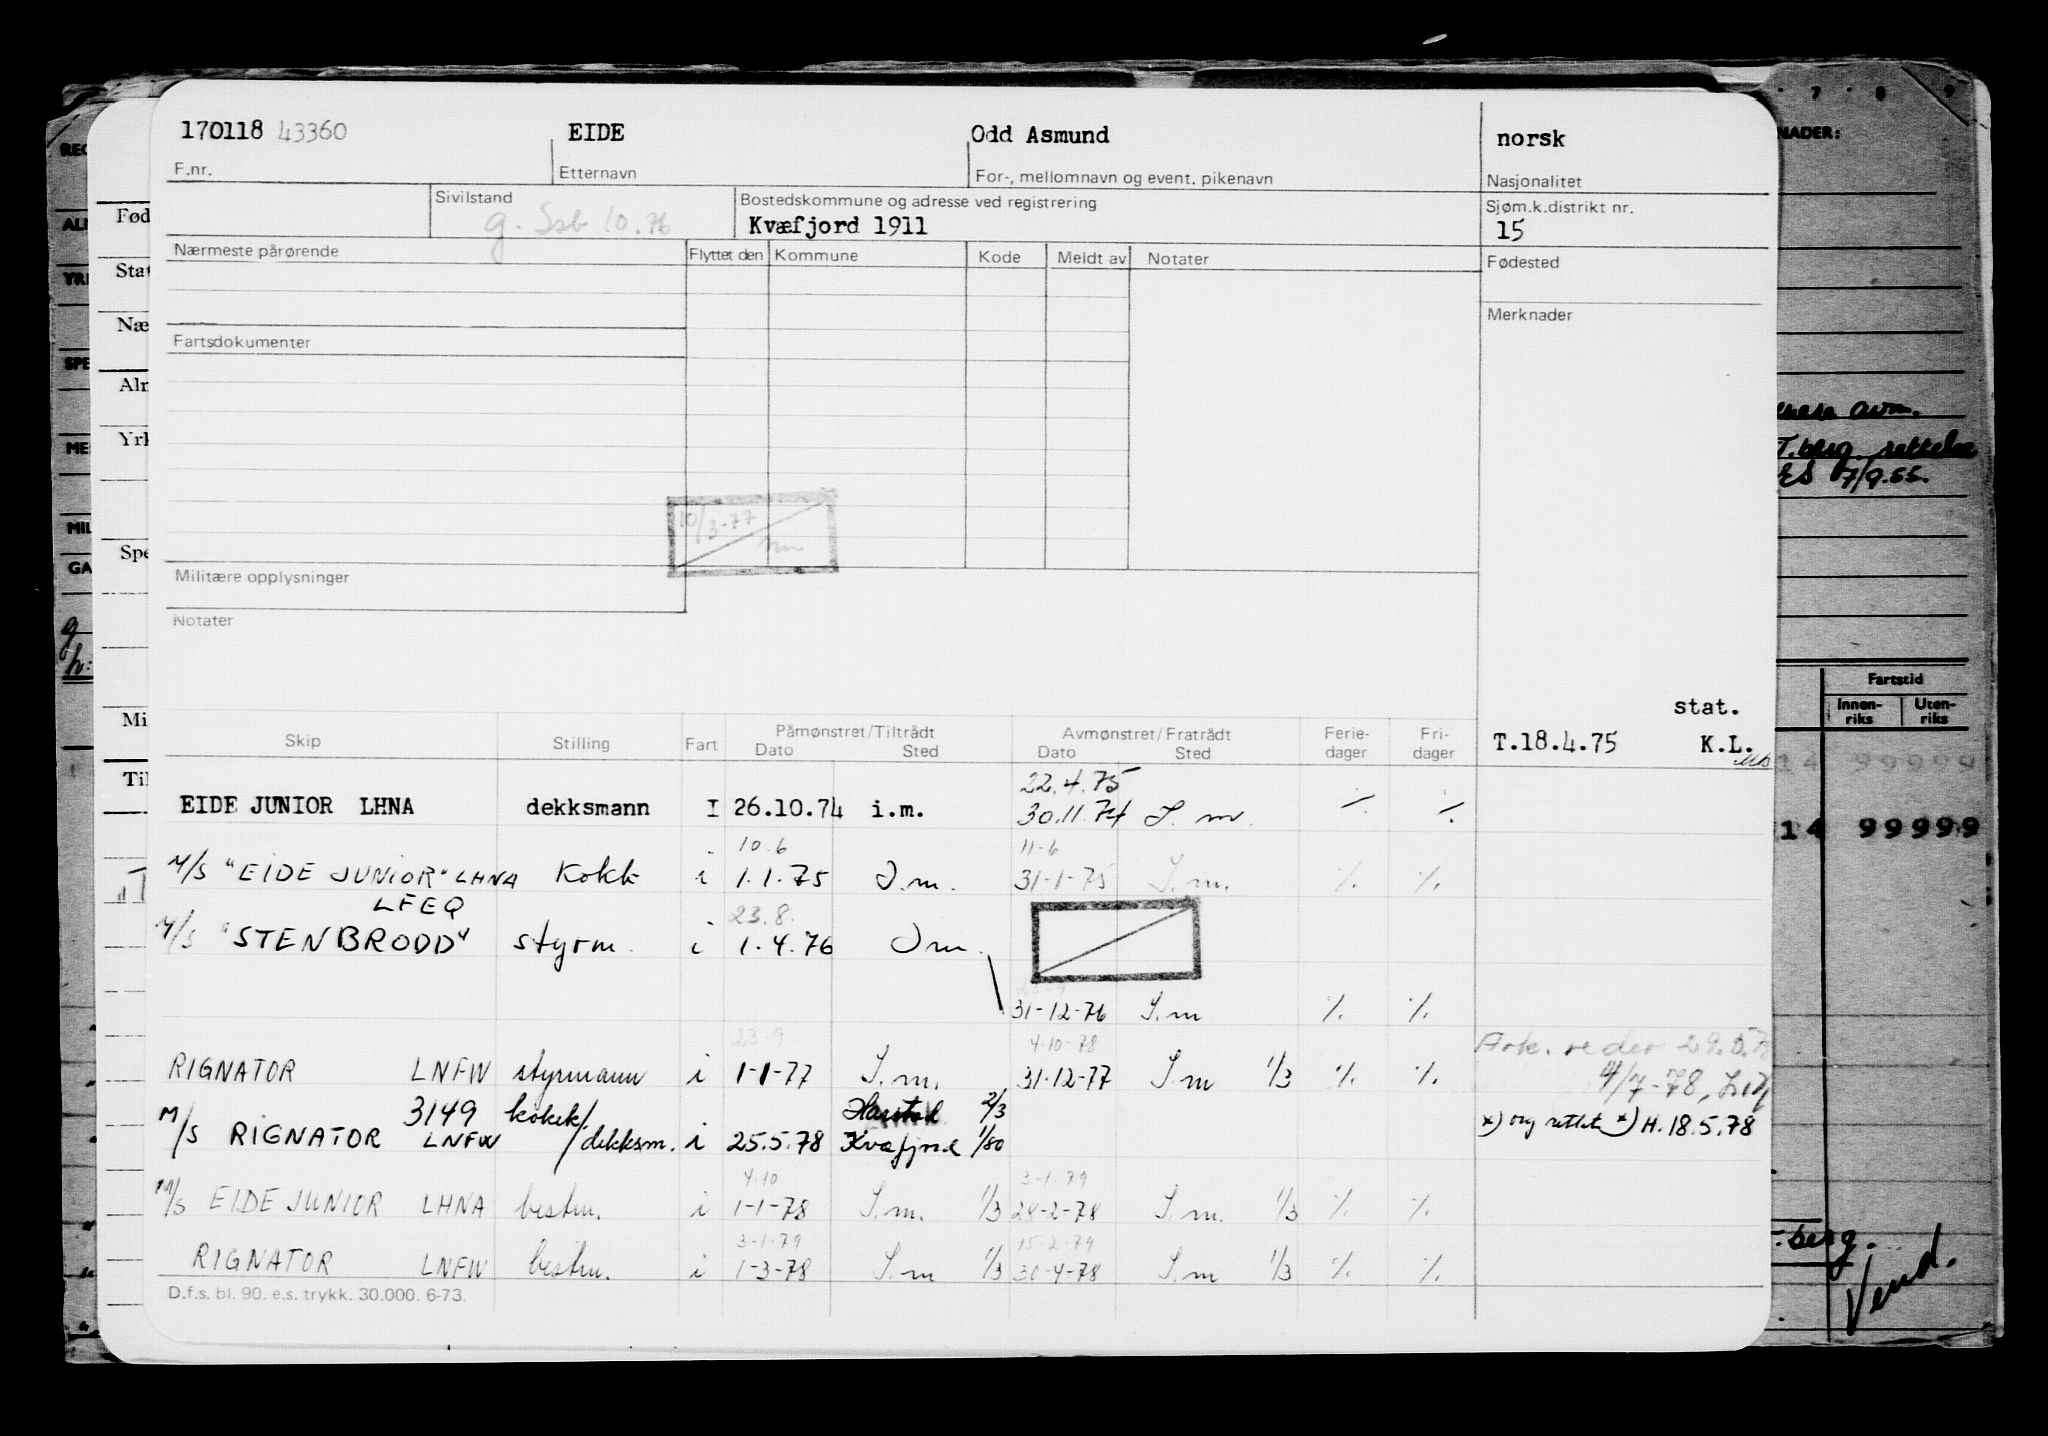 170118 43360 EIDE Odd Asmund norsk
F.nr. Etternavn For-, mellomnavn og event. pikenavn Nasjonalitet
Sivilstand Bostedskommune og adresse ved registrering Sjøm.k.distrikt nr.
g. Ssb 10.76 Kvæfjord 1911 15
Nærmeste pårørende Flyttet den Kommune Kode Meldt av Notater Fødested
Merknader
Fartsdokumenter
10/3-77
Militære opplysninger
Notater
stat.
Skip Stilling Fart Påmønstret/Tiltrådt Dato Sted Avmønstret/Fratrådt Dato Sted Ferie-dager Fri-dager T.18.4.75 K.L.
22.4.75
EIDE JUNIOR LHNA dekksmann I 26.10.74 i.m. 30.11.74 I.m. % %
10.6 11-6
M/S "EIDE JUNIOR" LHNA Kokk i 1.1.75 I.m. 31-1-75 I.m. % %
LFEQ 23.8.
M/S "STENBRODD" styrm. i 1.4.76 Im.
31-12-76 I.m % %
23-9 4.10-78
RIGNATOR LNFW styrmann i 1-1-77 I.m. 31.12-77 I.m 1/3 % %
Ark. reder 29.5.
4/7-78,
3149 kokk/ Harstad 2/3
M/S RIGNATOR LNFW dekksm. i 25.5.78 Kvæfjord 1/80 x) og rettet x) H.18.5.78
4.10 3-1-79
M/S EIDE JUNIOR LHNA bestm. i 1-1-78 I.m. 1/3 28-2-78 I.m. 1/3 % %
3-1.79 15-2.79
RIGNATOR LNFW bestm. i 1-3-78 I.m 1/3 30-4-78 I.m 1/3 % %
D.f.s. bl. 90. e.s. trykk. 30.000. 6-73.
Fød
Stat
Næ
Yrk
Spe
Mi
Til
YRK
SPE
MIL
GA
7 8 9
NADER:
avm.
T.berg. rettelse
7/9.55.
Fartstid
Innen-riks Uten-riks
14 99999
14 99999
berg.
Vend.